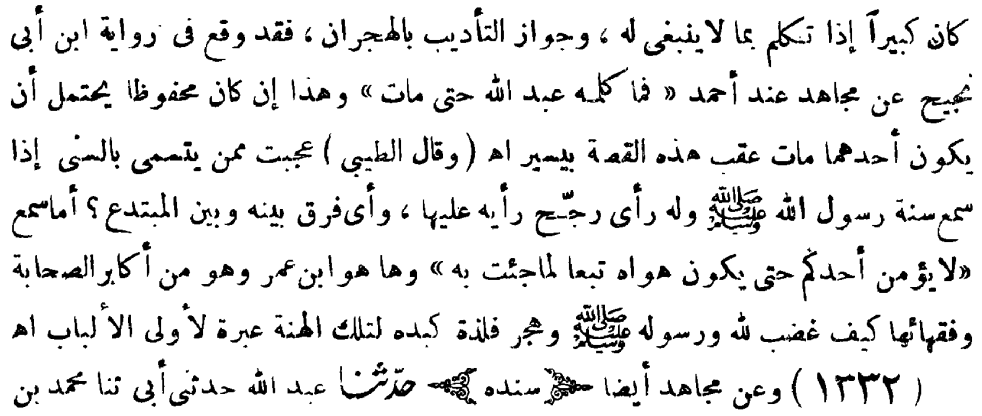 كان كبيراً إذا تكلم بما لا ينبغى له ، وجواز التأديب بالهجران ، فقد وقع فى رواية ابن أبى
نجيح عن مجاهد عند أحمد « فما كلمه عبد الله حتى مات » وهذا إن كان محفوظا يحتمل أن
يكون أحدهما مات عقب هذه القصة بيسير اه ( وقال الطيبي ) عجبت ممن يتسمى بالسنى إذا
سمع سنة رسول الله ﷺ وله رأى رجّح رأيه عليها ، وأى فرق بينه وبين المبتدع ؟ أما سمع
«لا يؤمن أحدكم حتى يكون هواه تبعا لما جئت به » وها هو ابن عمر وهو من أكابر الصحابة
وفقهائها كيف غضب لله ورسوله ﷺ وهجر فلذة كبده لتلك الهنة عبرة لأولى الألباب اه
( ١٣٣٢ ) وعن مجاهد أيضا ﴿ سنده ﴾ حدّثنا عبد الله حدثنى أبى ثنا محمد بن